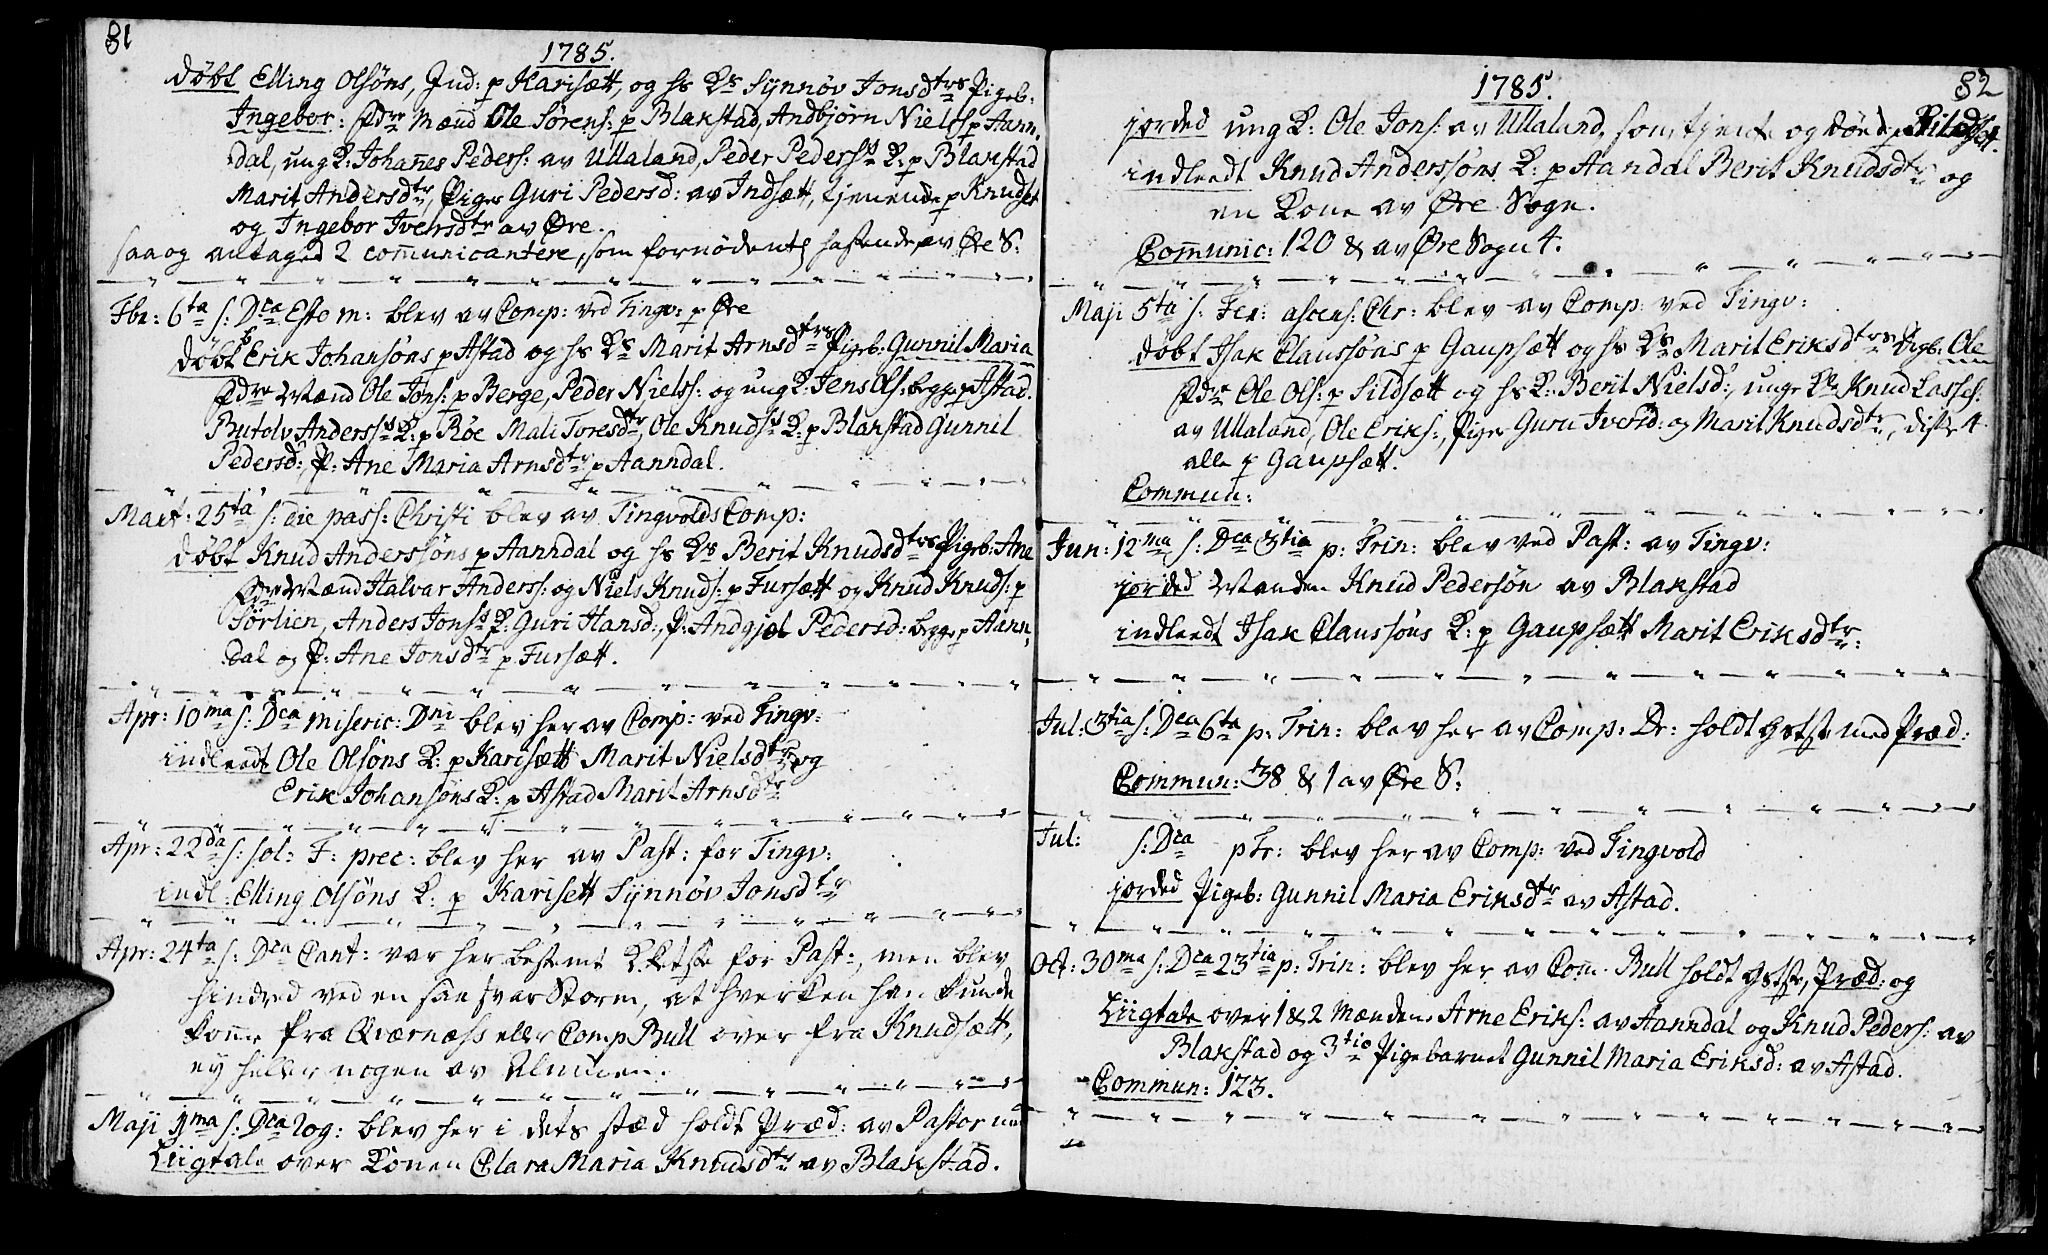 81
1785.
døbt Elling Olsöns, Ind: p Karisætt, og hs Ks Synnöv Jonsdtrs Pigeb:
Ingebor: Fdre Mænd Ole Sörens: p Blakstad, Andbjörn Niels: p Aann,
dal, ung K: Johañes Peders: av Ullaland, Peder Pederss K: p Blakstad
Marit Andersdtr, Piger Guri Pedersd: av Indsætt, tjenende p Knudset
og Ingebor Iversdtr av Øre.
saa og antaged 2 com̃unicantere, som fornödent hastende av Øre S:
Fbr: 6ta s: Dca Estom: blev av Comp: ved Tingv: p Øre
döbt Erik Johansöns p Astad og hs Ks Marit Arnsdtrs Pigeb: Gunnil Maria
Fdre Mænd Ole Jons: p Berge, Peder Nielss: og ung K: Jens Ols: begge p Astad.
Butolv Anderss K: p Röe Mali Toresdtr, Ole Knuds K: p Blakstad Gunnil
Pedersd:, P: Ane Maria Arnsdtr p Aanndal.
Mart: 25ta s: die pass: Christi blev av Tingvolds Comp:
döbt Knud Anderssöns p Aanndal og hs Ks Berit Knudsdtrs Pigeb: Ane
Fdre Mænd Halvar Anders: og Niels Knuds: p Fursætt og Knud Knuds: p
Sörlien, Anders Jons K: Guri Hansd:, P: Andgjæl Pedersd: begge p Aann,
dal og P: Ane Jonsdtr p Fursætt.
Apr: 10ma s: Dca Miseric: Dni blev her av Comp: ved Tingv:
indleedt Ole Olsöns K: p Karisætt Marit Nielsdtr, og
Erik Johansöns K: p Astad Marit Arnsdtr
Apr: 22da s: sol: F: prec: blev her av Past: for Tingv:
indl: Elling Olsöns K: p Karisett Synnöv Jonsdtr
Apr: 24ta s: Dca Cant: var her bestemt for Past:, men blev
hindred ved en saa svar Storm, at hverken han kunde
kom̃e fra Qværnæss eller Comp Bull over fra Knudsætt,
ey heller nogen av Almuen.
Maji 1ma s: Dca Rog: blev her i dets stæd holdt Præd: av Pastor
Liigtale over Konen Clara Maria Knudsdtr av Blakstad.
82
1785.
jorded ung K: Ole Jons: av Ullaland, som tjente og döde p Sildset.
indleedt Knud Anderssöns K: p Aandal Berit Knudsdtr og
en Kone av Øre Sogn.
Com̃unic: 120 & av Øre Sogn 4.
Maji 5ta s: Fer: ascens: Chr: blev av Comp: ved Tingv:
döbt Isak Claussöns p Gaupsætt og hs Ks Marit Eriksdtrs Drgb: Ole
Fdre Ole Ols: p Sildsætt og hs K: Berit Nielsd:, unge Kle Knud Lasses:
av Ullaland, Ole Eriks:, Piger Guru Iversd: og Marit Knudsdtr, disse 4
alle p Gaupsætt.
Commun:
Jun: 12ma s: Dca 3tia p: Trin: blev ved Past: av Tingv:
jorded Manden Knud Pedersön av Blakstad
indleedt Isak Claussöns K: p Gaupsætt Marit Eriksdtr:
Jul: 3tia s: Dca 6ta p: Trin: blev her av Comp: Dr: holdt Gtste med Præd:
Commun: 38 & 1 av Øre S:
Jul: s: Dca pTr: blev her av Comp: ved Tingvold
jorded Pigeb: Gunnil Maria Eriksdtr av Astad.
Oct: 30ma s: Dca 23tia p: Trin: blev her av Com̃. Bull holdt Gtste, Præd: og
Liigtale over 1 & 2 Mændene Arne Eriks: av Aanndal og Knud Peders: av
Blakstad og 3tio Pigebarnet Gunnil Maria Eriksd: av Astad.
Commun: 123.